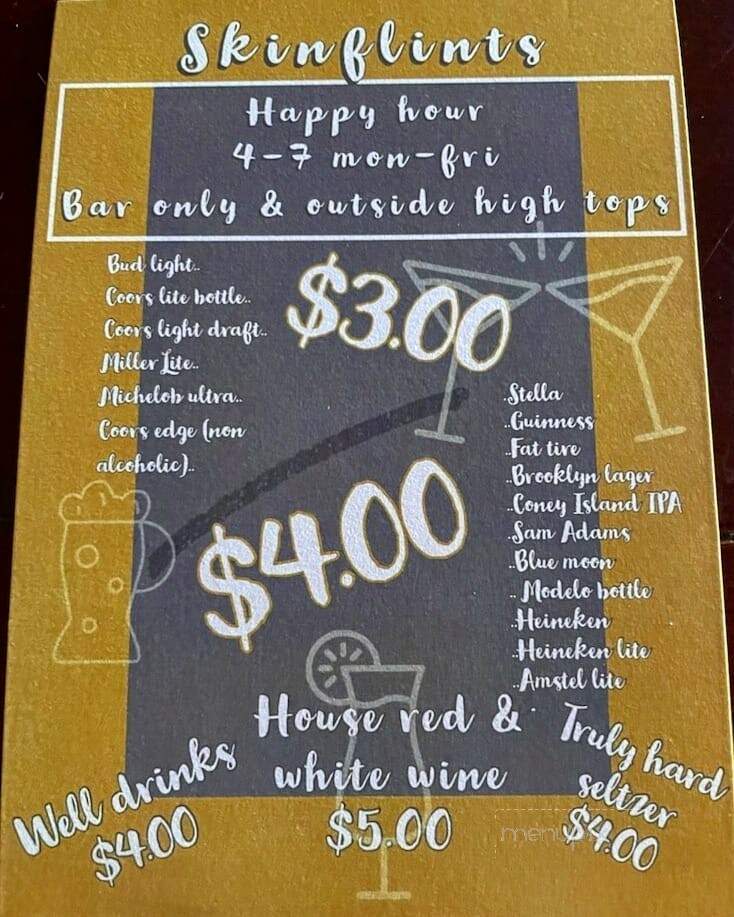 Skinflints
Happy hour
4-7 mon-fri
Bar only & outside high tops
Bud light..
Coors lite bottle..
Coors light draft..
Miller Lite..
Michelob ultra..
Coors edge (non
alcoholic)..
$3.00
..Stella
..Guinness
..Fat tire
..Brooklyn lager
..Coney Island IPA
..Sam Adams
..Blue moon
.. Modelo bottle
..Heineken
..Heineken lite
..Amstel lite
$4.00
Well drinks
$4.00
House red &
white wine
$5.00
Truly hard
seltzer
$4.00